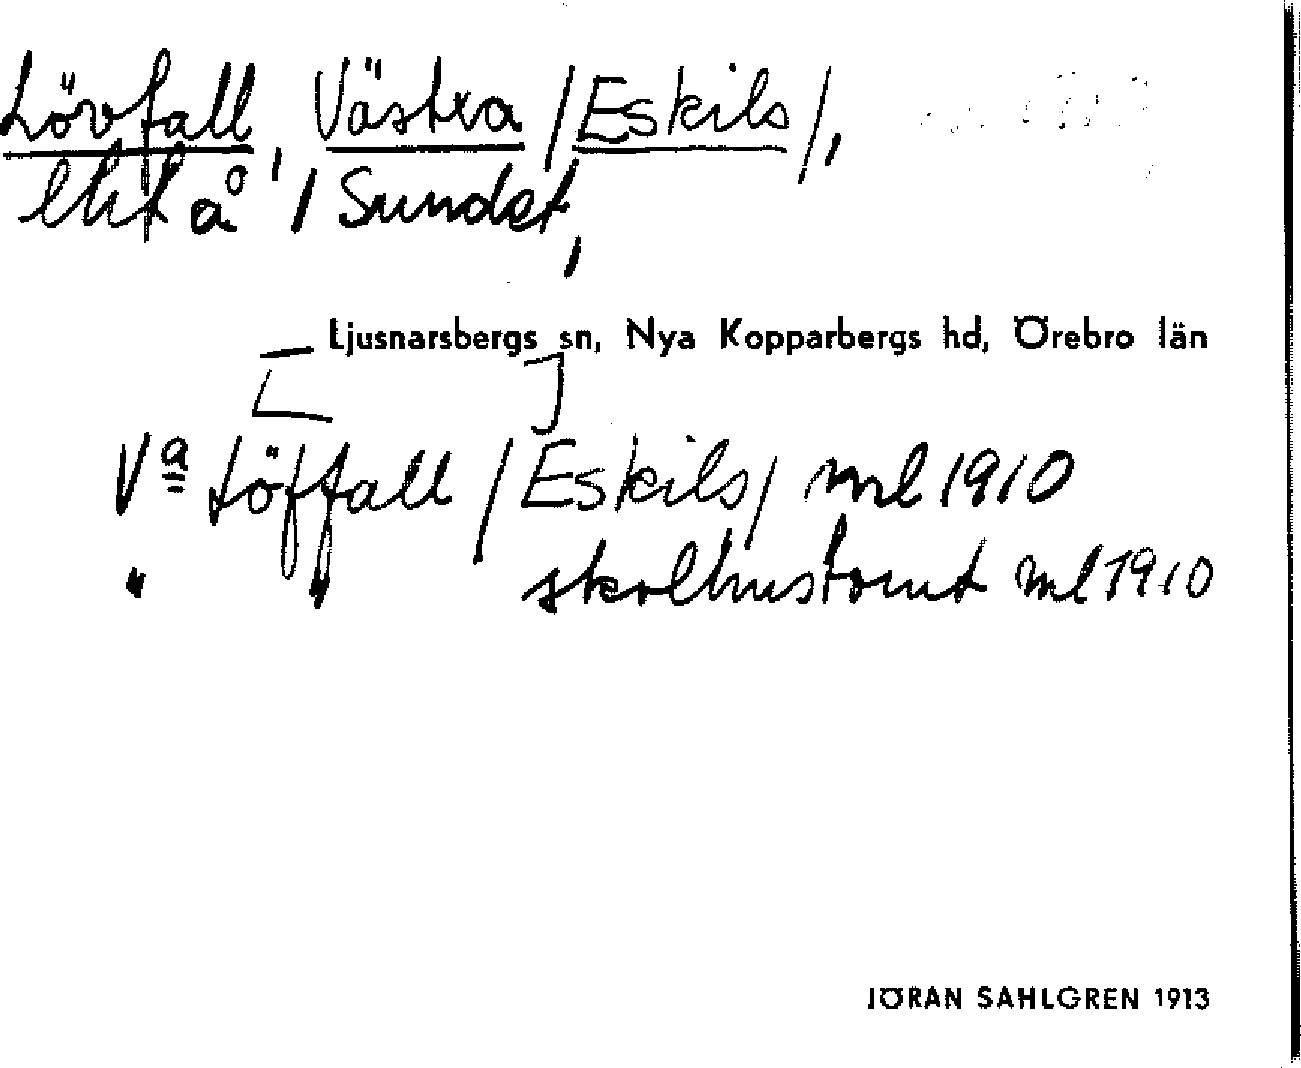 Lövfall, Västra /Eskils/,
lht å / Sundet,
Ljusnarsbergs sn, Nya Kopparbergs hd, Örebro län
Va Löffall /Eskils/ ml 1910
" " skolhustomt ml 1910
JÖRAN SAHLGREN 1913